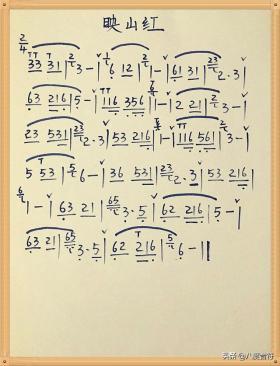 映山红
2/4
33 31 | 2/7 3 - | 6 12 | 2/7 1 - | 61 31 | 23/7 2·3 |
63 216 | 5 - | 116 356 | 1 - | 2 21 | 2/7 3 - |
23 531 | 23/7 2·3 | 53 216 | 1 - | 116 561 | 2/7 3 - |
5 53 | 5/7 6 - | 36 531 | 23/7 2·3 | 53 216 |
6/7 1 - | 63 21 | 65/7 3·5 | 62 216 | 5 - |
63 21 | 65/7 3·5 | 62 216 | 5/7 6 - ||
头条 @八度音符